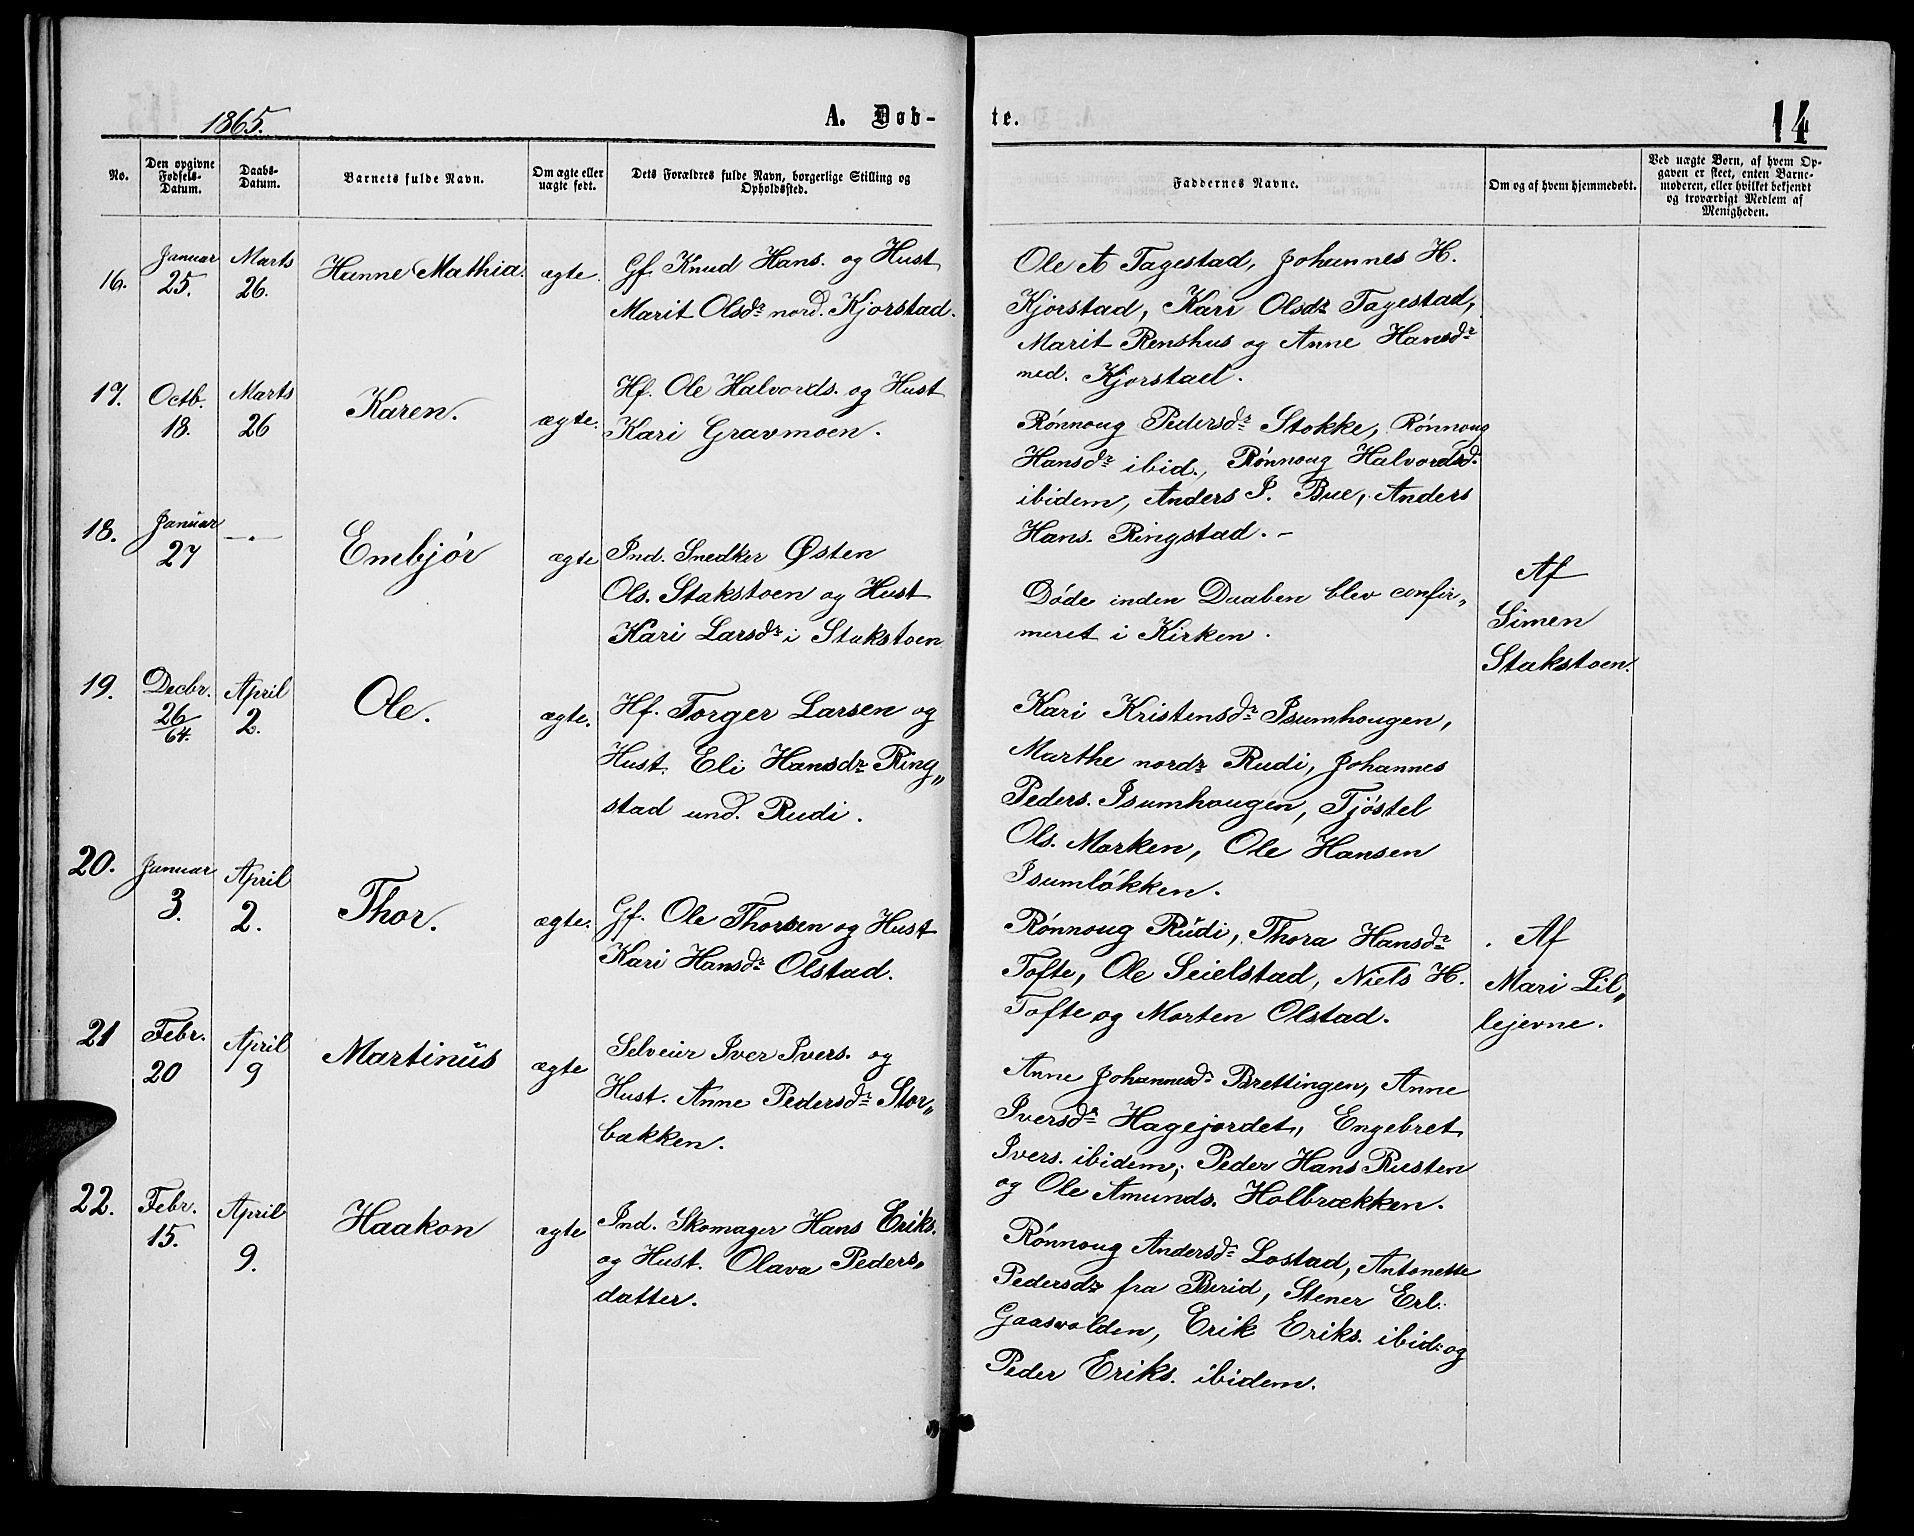 1865.
A. Døb-
te.
14
No.
Den opgivne
Fødsels-
Datum.
Daabs-
Datum.
Barnets fulde Navn.
Om ægte eller
uægte født.
Dets Forældres fulde Navn, borgerlige Stilling og
Opholdssted.
Faddernes Navne.
Om og af hvem hjemmedøbt.
Ved uægte Børn, af hvem Op-
gaven er skeet, enten Barne-
moderen, eller hvilket bekjendt
og troværdigt Medlem af
Menigheden.
16.
Januar
25.
Marts
26.
Hanne Mathia.
ægte.
Gf. Knud Hans. og Hust
Marit Olsdr nord. Kjorstad.
Ole A Tagestad, Johannes H.
Kjorstad, Kari Olsdr Tagestad,
Marit Renshus og Anne Hansdr
ned. Kjorstad.
17.
Octb.
18.
Marts
26
Karen.
ægte.
Hf. Ole Halvords. og Hust
Kari Gravmoen.
Rønnoug Pedersdr Stokke, Rønnoug
Hansdr ibid., Rønnoug Halvordsd.
ibidem, Anders P. Bue, Anders
Hans. Ringstad. –
18.
Januar
27
—„—
Embjør
ægte
Ind. Snedker Østen
Ols. Stakstoen og Hust
Kari Larsdr i Stakstoen
Døde inden Daaben blev confir„
meret i Kirken.
Af
Simen
Stakstoen.
19.
Decbr.
26/64.
April
2.
Ole.
ægte.
Hf. Torger Larsen og
Hust. Eli Hansdr Ring„
stad und. Rudi.
Kari Kristensdr Isumhougen,
Marthe nordr Rudi, Johannes
Peders. Isumhougen, Tjøstel
Ols. Marken, Ole Hansen
Isumløkken.
20.
Januar
3.
April
2.
Thor.
ægte.
Gf. Ole Thorsen og Hust
Kari Hansdr Olstad.
Rønnoug Rudi, Thora Hansdr
Tofte, Ole Seielstad, Niels H.
Tofte og Morten Olstad.
. Af
Mari Lil„
lejevne.
21
Febr.
20
April
9
Martinus
ægte
Selveier Iver Ivers. og
Hust. Anne Pedersdr Stor„
bækken.
Anne Johannesdr Brettingen, Anne
Iversdr Hagejordet, Engebret
Ivers. ibidem, Peder Hans Rusten
og Ole Amunds. Holbrækken.
22.
Febr.
15.
April
9.
Haakon
ægte
Ind. Skomager Hans Eriks.
og Hust. Olava Peders„
datter.
Rønnoug Andersdr Lostad, Antonette
Pedersdr fra Birid, Stener Erl.
Gaasvolden, Erik Eriks. ibid: og
Peder Eriks. ibidem.